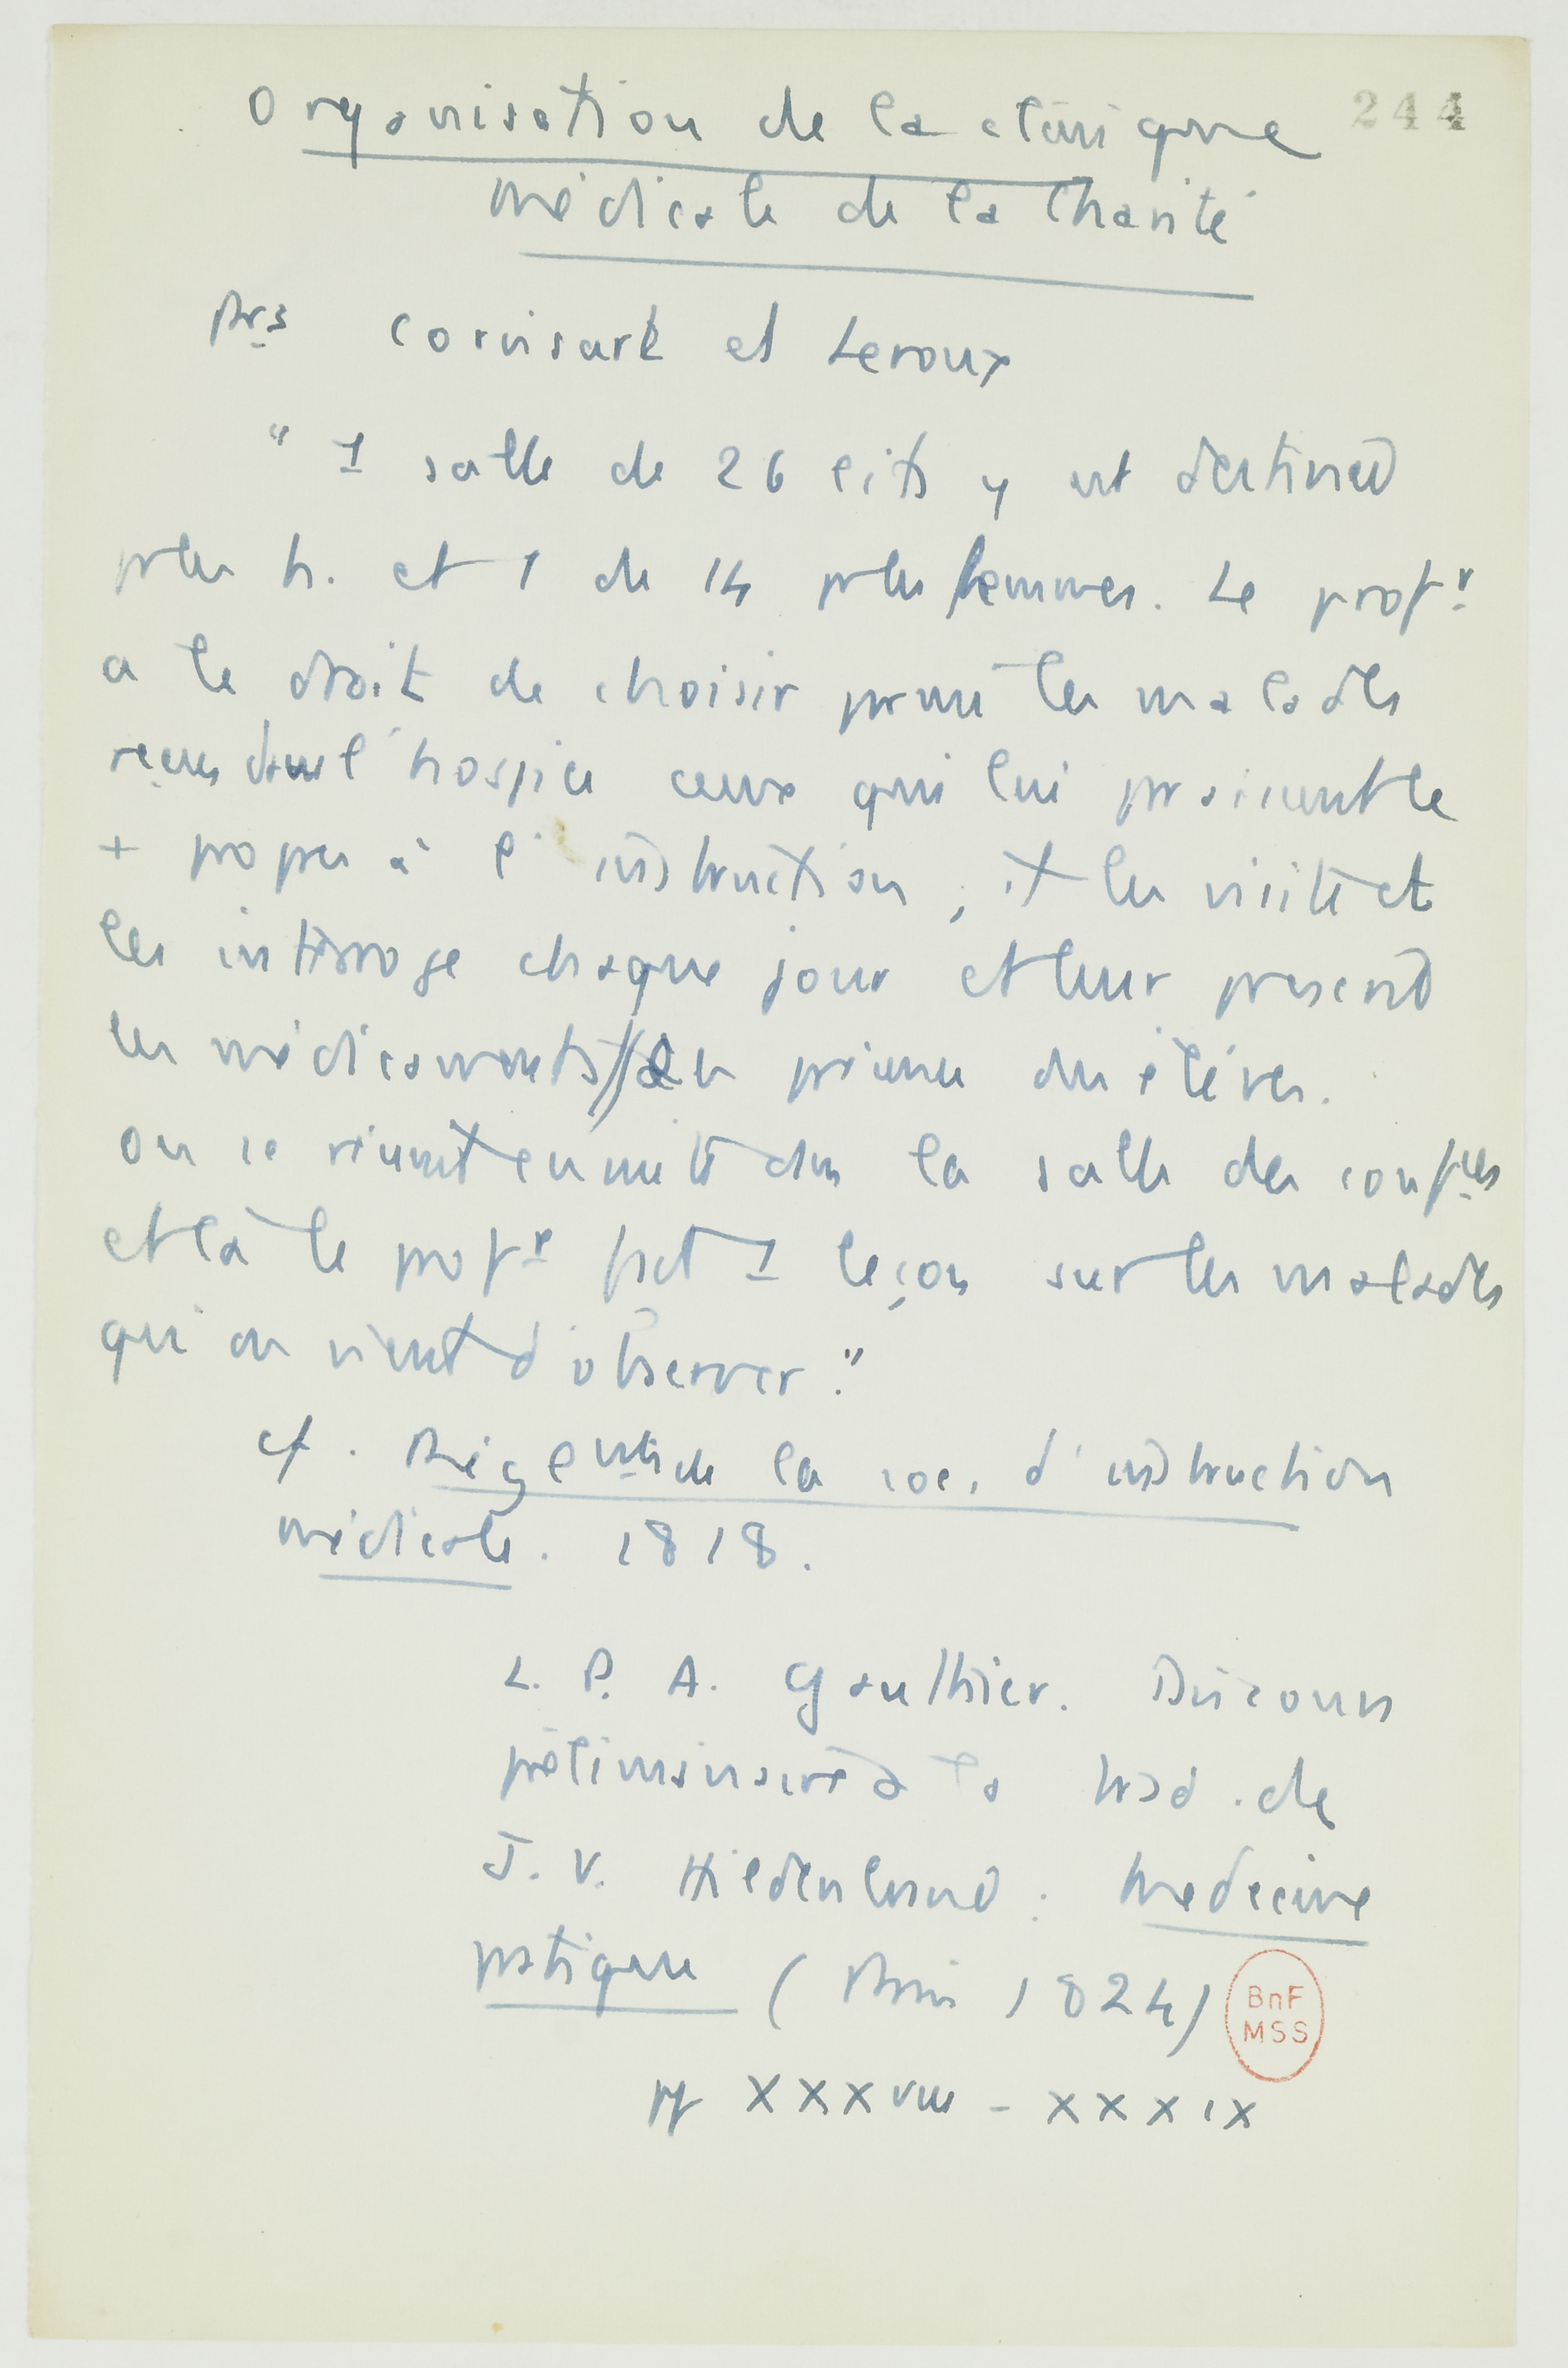 Organisation de la clinique
244
médicale de la Charité
Prs Corvisart et Leroux
" 1 salle de 26 lits y est destinée
pr les h. et 1 de 14 pr les femmes. Le profr
a le droit de choisir parmi les malades
reçus dans l'hospice ceux qui lui paraissent le
+ propres à l'instruction ; il les visite et
les interroge chaque jour et leur prescrit
les médicaments en présence des élèves.
On se réunit ensuite dans la salle des confces
et là le profr fait 1 leçon sur les malades
qu'on vient d'observer."
cf. Réglemts de la soc. d'instruction
médicale. 1818.
L. P. A. Gauthier. Discours
préliminaire à la trad. de
J. V. Hildenbrand : Médecine
pratique (Paris 1824)
BnF
MSS
pp XXXVIII - XXXIX